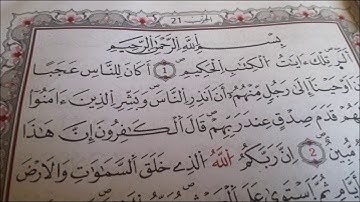 الحزب 21
بِسْمِ اللَّهِ الرَّحْمَٰنِ الرَّحِيمِ
أَلَٓرۖ تِلْكَ ءَايَٰتُ الْكِتَٰبِ الْحَكِيمِۖ 1 أَكَانَ لِلنَّاسِ عَجَبًا
اَوْحَيْنَا إِلَىٰ رَجُلٍ مِّنْهُمُۥ أَنَ اَنذِرِ النَّاسَ وَبَشِّرِ الذِينَ ءَامَنُوا
قَدَمَ صِدْقٍ عِندَ رَبِّهِمْۖ قَالَ الْكَٰفِرُونَ إِنَّ هَٰذَا
مُّبِينٌۖ 2 إِنَّ رَبَّكُمُ اللَّهُ الذِي خَلَقَ السَّمَٰوَٰتِ وَالَارْضَ
ثُمَّ اَسْتَوَىٰ عَلَى